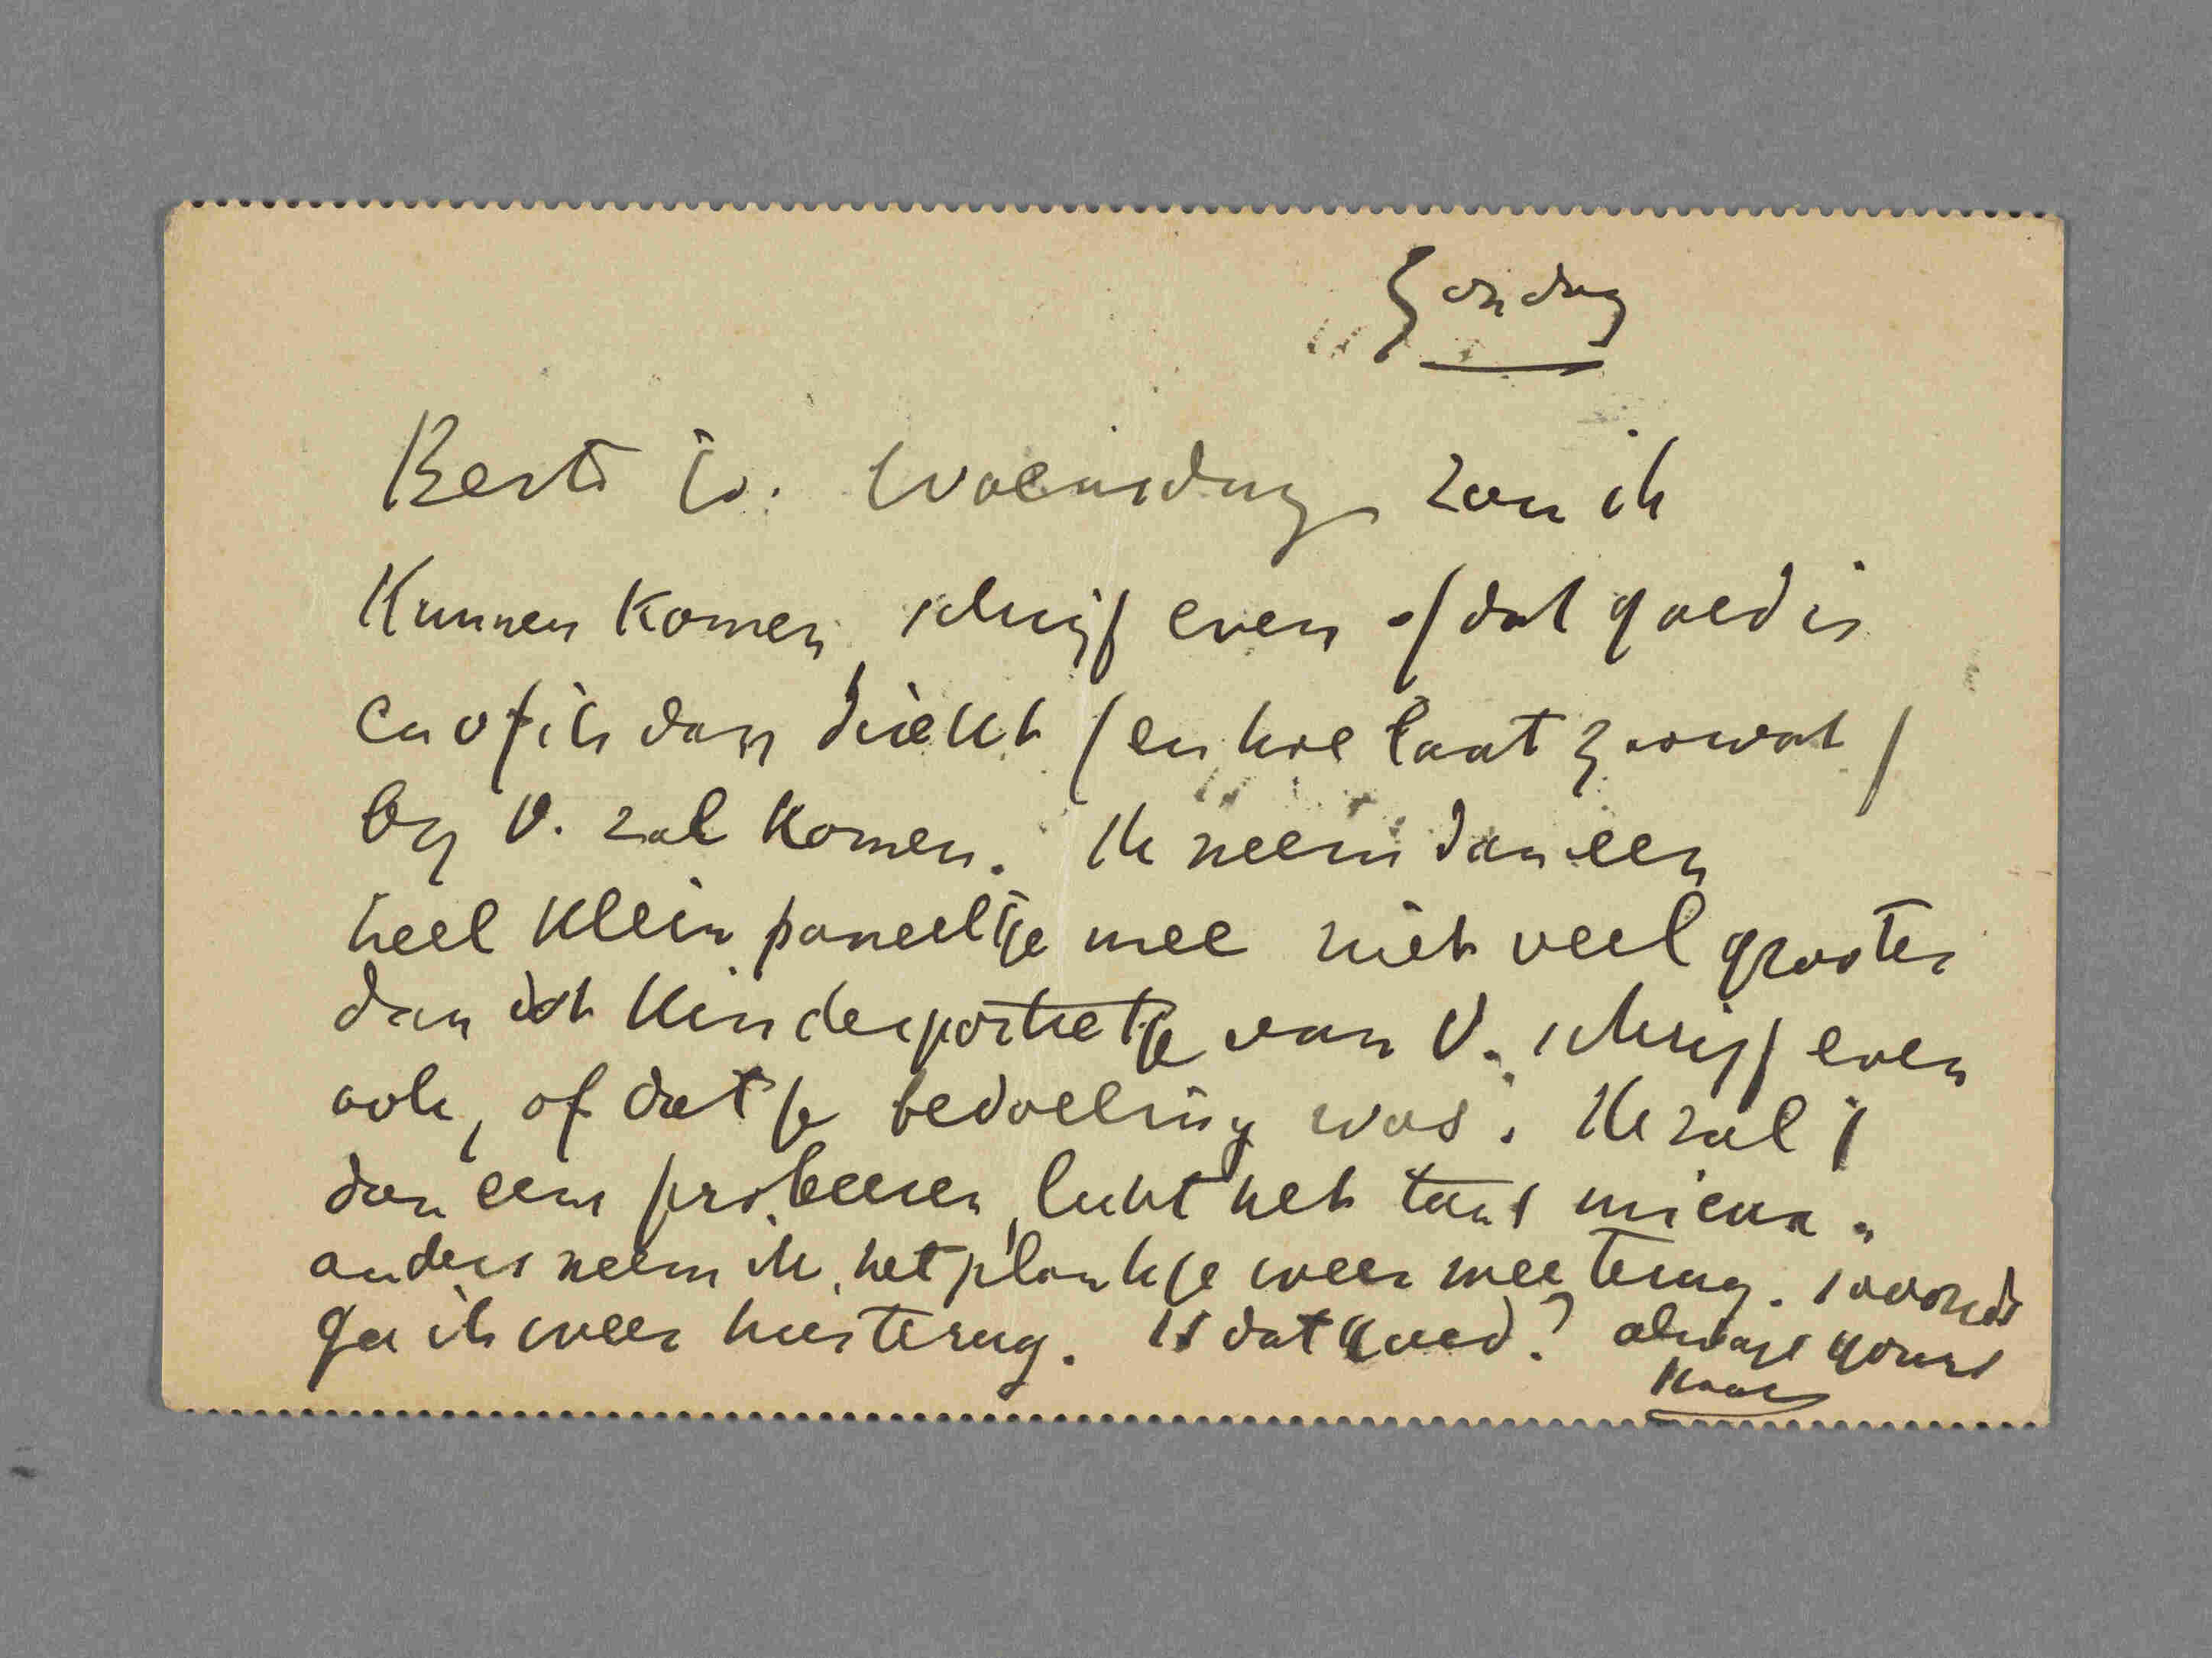 Zondag
Beste Io. Woensdag zou ik
Kunnen Komen, schrijf even of dat goed is
en of ik dan direkt (en hoe laat zoowat)
by V. zal Komen. Ik neem dan een
heel klein paneeltje mee niet veel grooter
dan dat Kinderportretje van V. schrijf even
ook, of dat je bedoeling was. Ik zal
dan eens probeeren, lukt het tant mieux.
anders neem ik het plankje weer mee terug. savonds
ga ik weer hier terug. Is dat goed? always yours